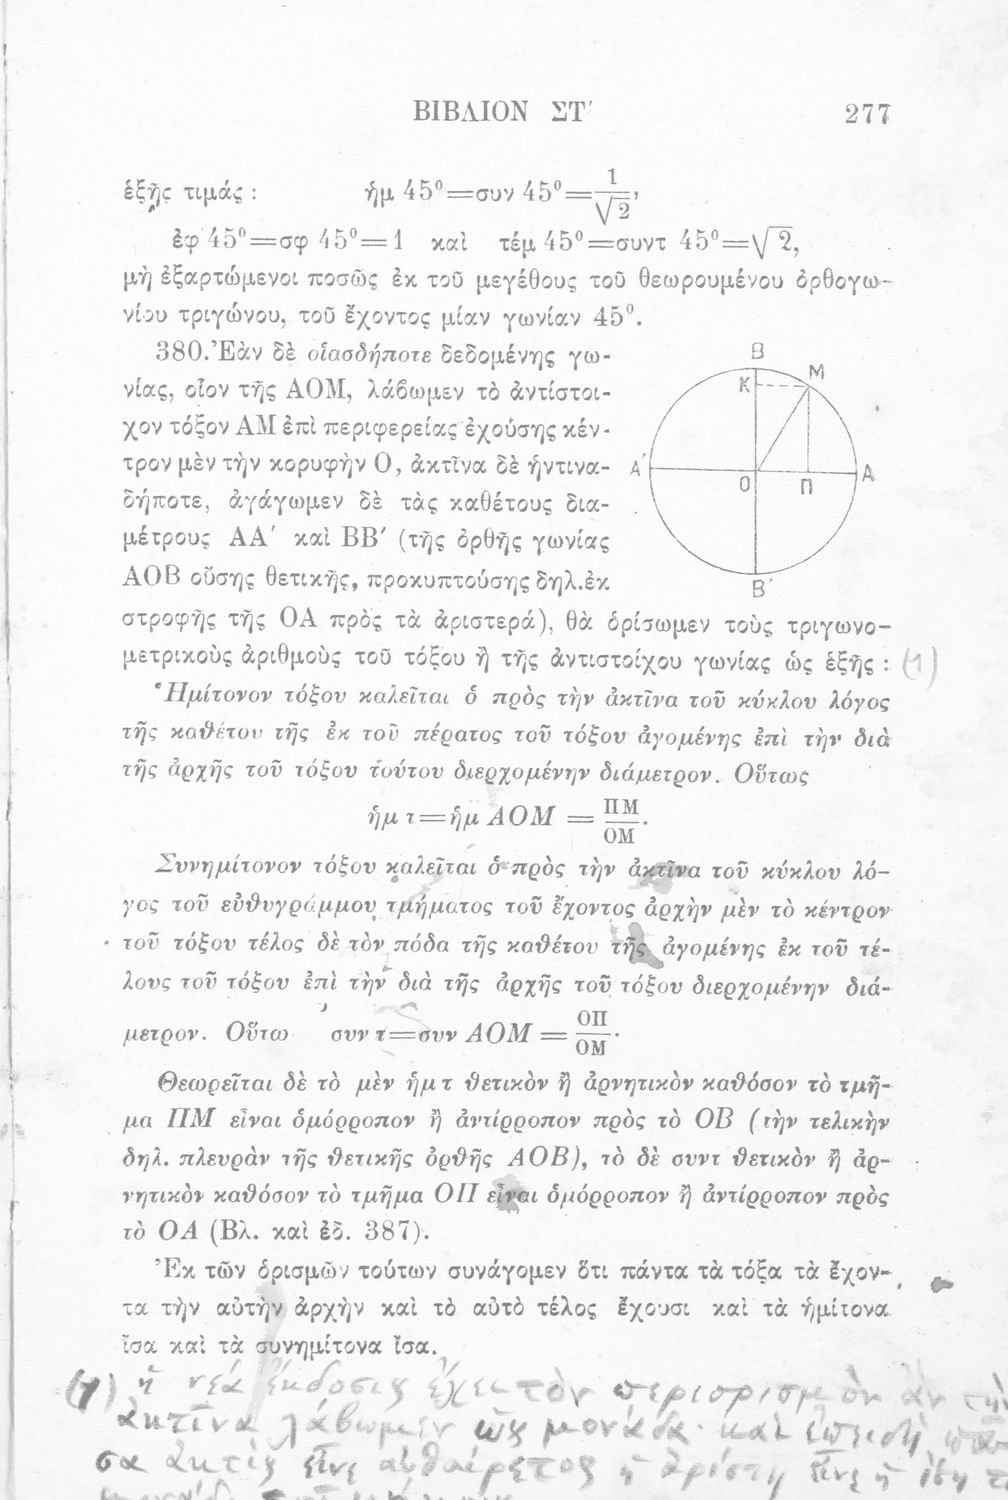 ΒΙΒΛΙΟΝ ΣΤ΄ 277
ἑξῆς τιμάς : ἡμ 45⁰=συν 45⁰=1/√2,
ἐφ 45⁰=σφ 45⁰=1 καὶ τέμ 45⁰=συντ 45⁰=√2,
μὴ ἐξαρτώμενοι ποσῶς ἐκ τοῦ μεγέθους τοῦ θεωρουμένου ὀρθογω-
νίου τριγώνου, τοῦ ἔχοντος μίαν γωνίαν 45⁰.
380. Ἐὰν δὲ οἱασδήποτε δεδομένης γω-
νίας, οἷον τῆς ΑΟΜ, λάβωμεν τὸ ἀντίστοι-
χον τόξον ΑΜ ἐπὶ περιφερείας ἐχούσης κέν-
τρον μὲν τὴν κορυφὴν Ο, ἀκτῖνα δὲ ἡντινα-
δήποτε, ἀγάγωμεν δὲ τὰς καθέτους δια-
μέτρους ΑΑ΄ καὶ ΒΒ΄ (τῆς ὀρθῆς γωνίας
ΑΟΒ οὔσης θετικῆς, προκυπτούσης δηλ. ἐκ
στροφῆς τῆς ΟΑ πρὸς τὰ ἀριστερά), θὰ ὁρίσωμεν τοὺς τριγωνο-
μετρικοὺς ἀριθμοὺς τοῦ τόξου ἢ τῆς ἀντιστοίχου γωνίας ὡς ἑξῆς : (1)
Β
Κ Μ
Α΄ Α
Ο Π
Β΄
Ἡμίτονον τόξου καλεῖται ὁ πρὸς τὴν ἀκτῖνα τοῦ κύκλου λόγος
τῆς καθέτου τῆς ἐκ τοῦ πέρατος τοῦ τόξου ἀγομένης ἐπὶ τὴν διὰ
τῆς ἀρχῆς τοῦ τόξου τούτου διερχομένην διάμετρον. Οὕτως
ἡμ τ=ἡμ ΑΟΜ = ΠΜ/ΟΜ.
Συνημίτονον τόξου καλεῖται ὁ πρὸς τὴν ἀκτῖνα τοῦ κύκλου λό-
γος τοῦ εὐθυγράμμου τμήματος τοῦ ἔχοντος ἀρχὴν μὲν τὸ κέντρον
τοῦ τόξου τέλος δὲ τὸν πόδα τῆς καθέτου τῆς ἀγομένης ἐκ τοῦ τέ-
λους τοῦ τόξου ἐπὶ τὴν διὰ τῆς ἀρχῆς τοῦ τόξου διερχομένην διά-
μετρον. Οὕτω συν τ=συν ΑΟΜ = ΟΠ/ΟΜ.
Θεωρεῖται δὲ τὸ μὲν ἡμ τ θετικὸν ἢ ἀρνητικὸν καθόσον τὸ τμῆ-
μα ΠΜ εἶναι ὁμόρροπον ἢ ἀντίρροπον πρὸς τὸ ΟΒ (τὴν τελικὴν
δηλ. πλευρὰν τῆς θετικῆς ὀρθῆς ΑΟΒ), τὸ δὲ συντ θετικὸν ἢ ἀρ-
νητικὸν καθόσον τὸ τμῆμα ΟΠ εἶναι ὁμόρροπον ἢ ἀντίρροπον πρὸς
τὸ ΟΑ (Βλ. καὶ ἐδ. 387).
Ἐκ τῶν ὁρισμῶν τούτων συνάγομεν ὅτι πάντα τὰ τόξα τὰ ἔχον-
τα τὴν αὐτὴν ἀρχὴν καὶ τὸ αὐτὸ τέλος ἔχουσι καὶ τὰ ἡμίτονα
ἴσα καὶ τὰ συνημίτονα ἴσα.
(1) ἡ νέα ἔκδοσις ἔχει τὸν περιορισμὸν ἂν τὴν
ἀκτῖνα λάβωμεν ὡς μονάδα· καὶ ἐπειδὴ πᾶ-
σα ἀκτὶς εἶνε αὐθαίρετος ἡ ἀρίστη εἶνε ἡ